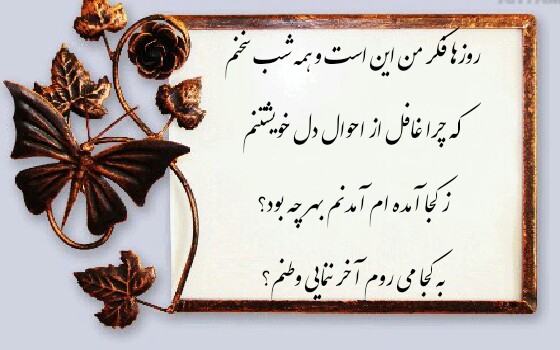 روزها فکر من این است و همه شب سخنم
که چرا غافل از احوال دل خویشتنم
ز کجا آمده ام آمدنم بهر چه بود؟
به کجا می روم آخر ننمایی وطنم؟